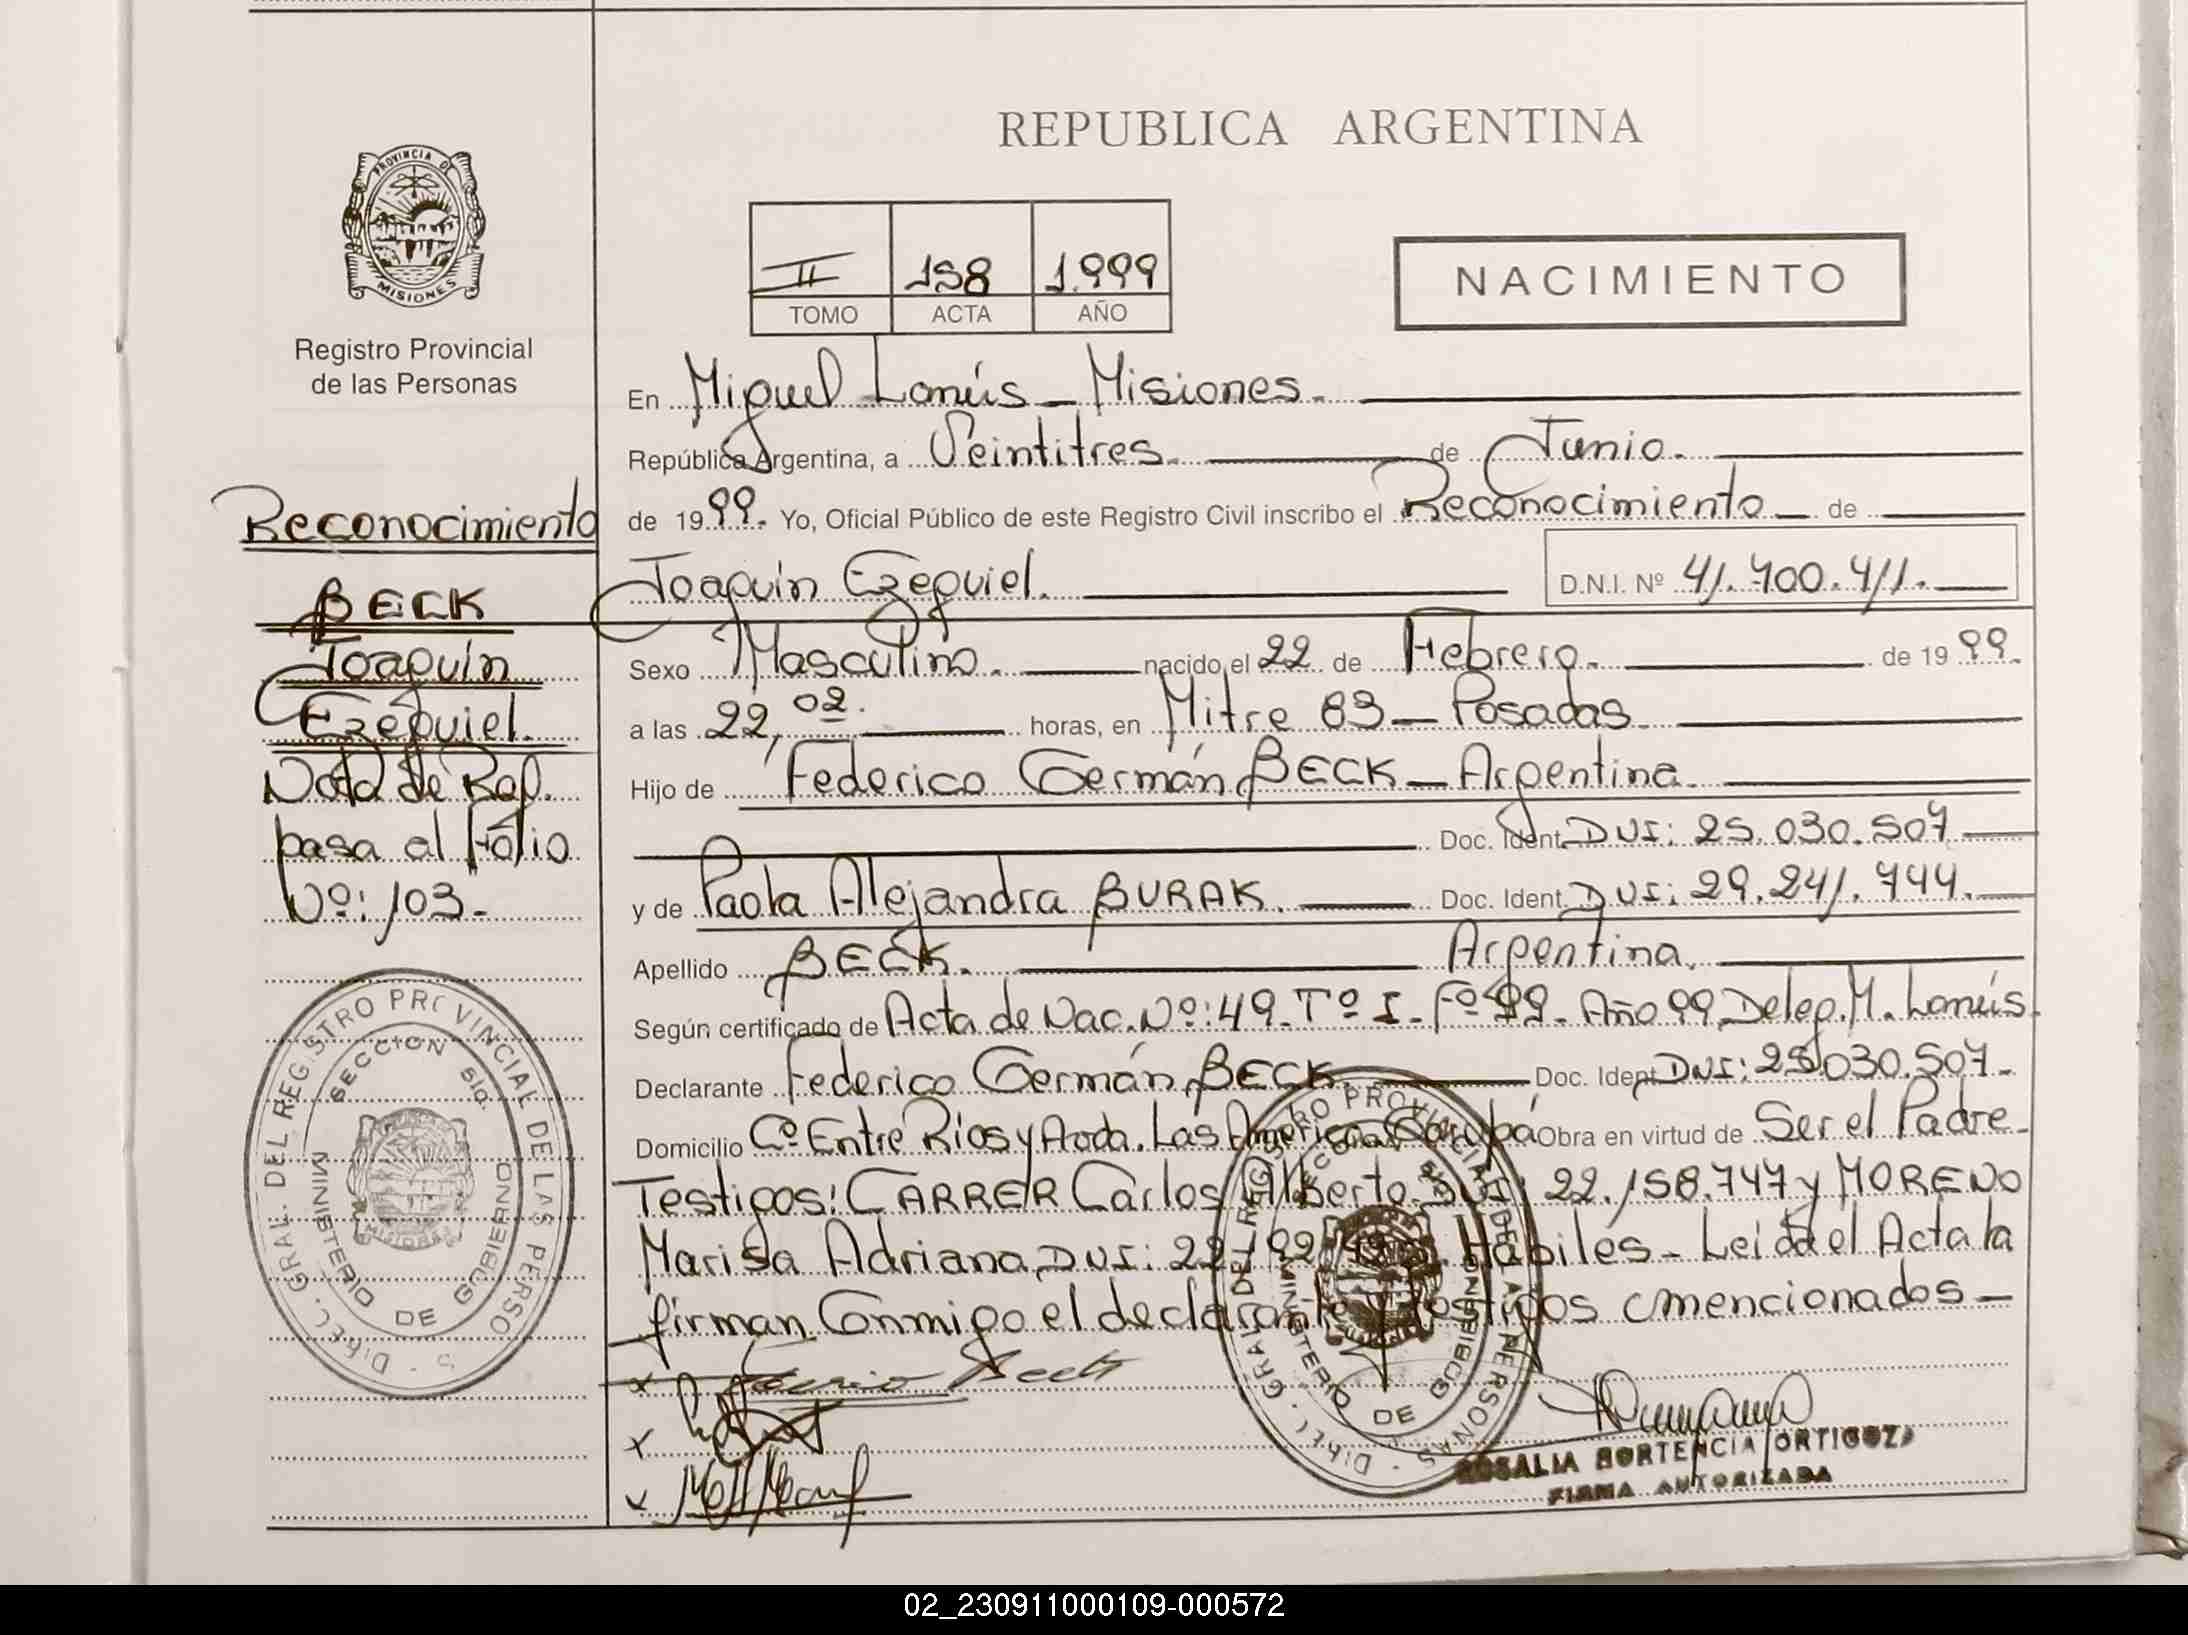 REPUBLICA ARGENTINA
PROVINCIA DE
MISIONES
Registro Provincial
de las Personas
II 158 1.999
TOMO ACTA AÑO
NACIMIENTO
En Miguel Lanús - Misiones.
República Argentina, a Veintitres. de Junio.
de 1999. Yo, Oficial Público de este Registro Civil inscribo el Reconocimiento de
Joaquín Ezequiel. D.N.I. Nº
Sexo Masculino. nacido el 22 de Febrero. de 1999.
a las 22,02. horas, en Mitre 83 - Posadas
Hijo de Federico Germán BECK - Argentina
Doc. Ident. DNI: 25.030.507
y de Paola Alejandra BURAK. Doc. Ident. DNI: 29.241.744.
Apellido BECK. Argentina.
Según certificado de Acta de Nac. Nº: 49. Tº I - Fº - Año 99 Deleg. M. Lanús.
Declarante Federico Germán BECK. Doc. Ident DNI: 25.030.507.
Domicilio Cº Entre Rios y Avda. Las Americas Garupá Obra en virtud de Ser el Padre.
Testigos: CARRER Carlos Alberto. DNI: 22.158.747 y MORENO
Marisa Adriana, DNI: Hábiles - Leida el Acta la
firman Conmigo el declarante y testigos mencionados -
Reconocimiento
BECK
Joaquín
Ezequiel.
Nota de Ref.
pasa al Folio
Nº: 103.
DIREC. GRAL. DEL REGISTRO PROVINCIAL DE LAS PERSONAS
SECCION 510.
MINISTERIO DE GOBIERNO
MISIONES
DIREC. GRAL. DEL REGISTRO PROVINCIAL DE LAS PERSONAS
MINISTERIO DE GOBIERNO
ROSALIA HORTENCIA ORTIGOZA
FIRMA AUTORIZADA
02_230911000109-000572